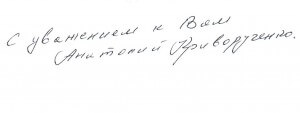 С уважением к Вам
Анатолий Криворученко.